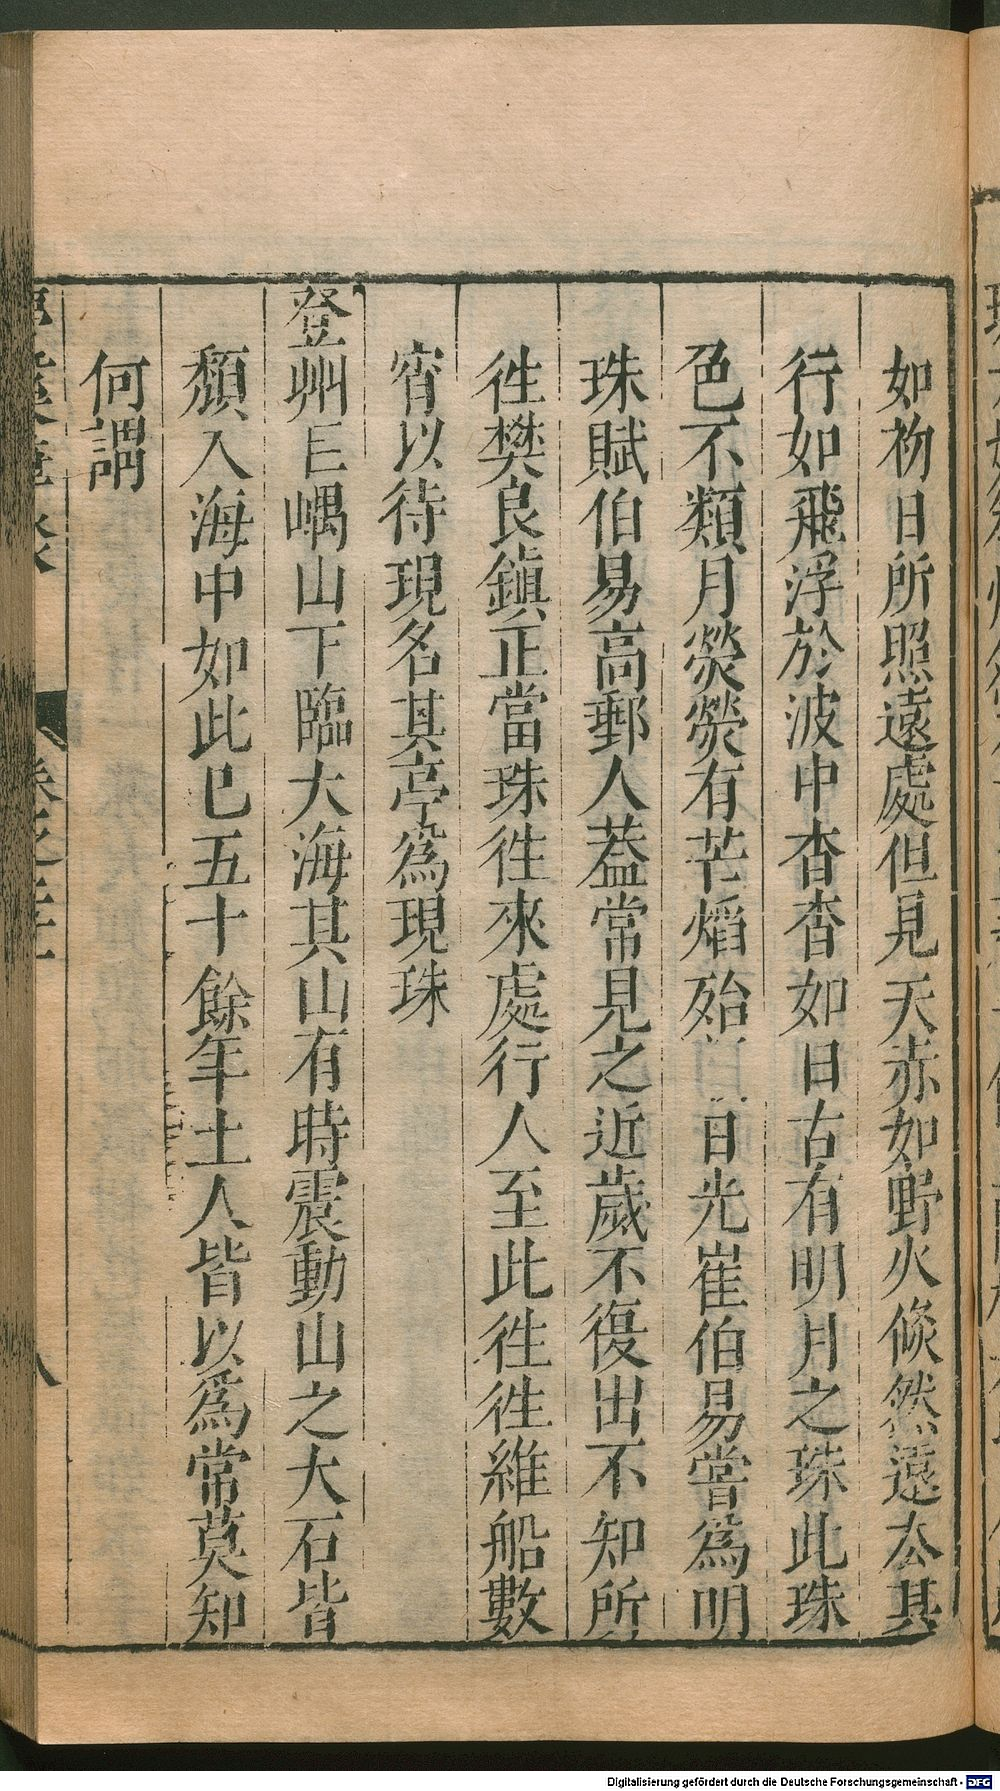 如初日所照遠處但見天赤如野火倏然遠去其
行如飛浮於波中杳杳如日古有明月之珠此珠
色不類月熒熒有芒焰殆　日光崔伯易嘗為明
珠賦伯易高郵人蓋常見之近歲不復出不知所
徃樊良鎮正當珠徃來處行人至此徃徃維船數
宵以待現名其亭為現珠
登州巨嵎山下臨大海其山有時震動山之大石皆
頹入海中如此已五十餘年土人皆以為常莫知
何謂
卷之二十一
八
Digitalisierung gefördert durch die Deutsche Forschungsgemeinschaft - DFG